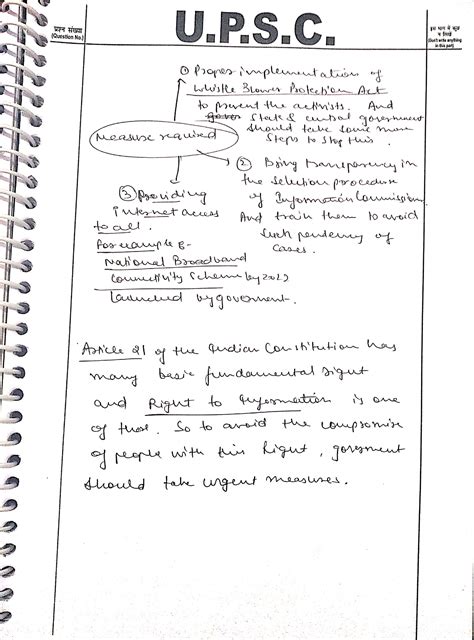 प्रश्न संख्या
(Question No.)
U.P.S.C.
इस भाग में कुछ
न लिखें
(Don't write anything
in this part)
① Proper implementation of
Whistle Blower Protection Act
to prevent the activists. And
State & central government
should take some more
steps to stop this.
Measure required
② Bring transparency in
the selection procedure
of Information Commission
And train them to avoid
such pendency of
cases.
③ Providing
internet access
to all.
For example :-
National Broadband
Connectivity Scheme by 2022
launched by goverment.
Article 21 of the Indian Constitution has
many basic fundamental right
and Right to Information is one
of those. So to avoid the compromise
of people with this Right, goverment
should take urgent measures.